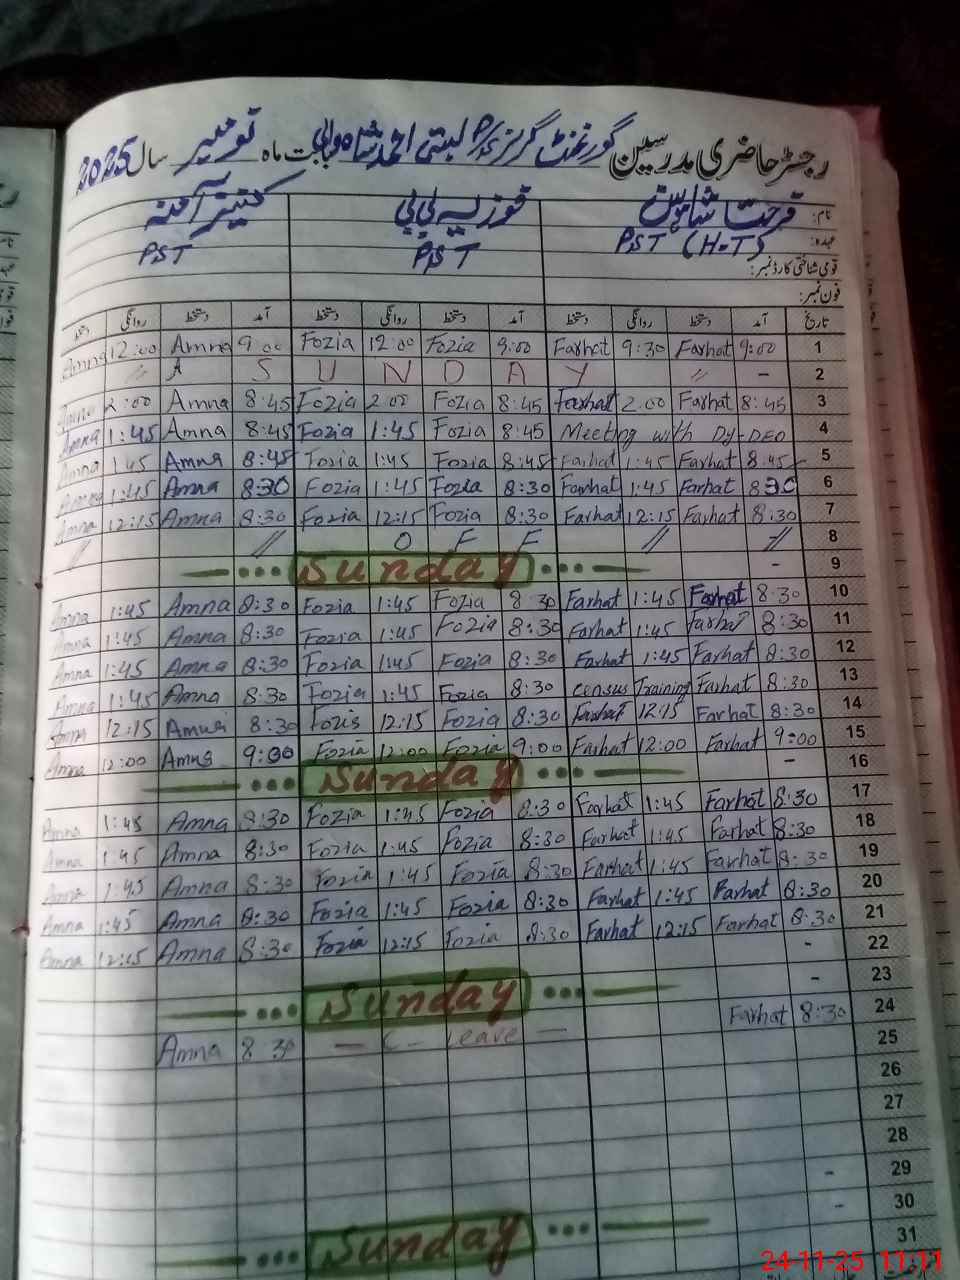 رجسٹر حاضری مدرسین گورنمنٹ گرلز P/S بستی احمد شاہ والی بابت ماہ نومبر سال 2025
نام: فرحت شاہین فوزیہ بی بی کنیز آمنہ
عہدہ: PST (H-T) PST PST
قومی شناختی کارڈ نمبر:
فون نمبر:
تاریخ آمد دستخط روانگی دستخط آمد دستخط روانگی دستخط آمد دستخط روانگی دستخط
Amna 12:00 Amna 9:00 Fozia 12:00 Fozia 9:00 Farhat 9:30 Farhat 9:00 1
" A S U N D A Y " - 2
Amna 2:00 Amna 8:45 Fozia 2:00 Fozia 8:45 Farhat 2:00 Farhat 8:45 3
Amna 1:45 Amna 8:45 Fozia 1:45 Fozia 8:45 Meeting with Dy-DEO 4
Amna 1:45 Amna 8:45 Fozia 1:45 Fozia 8:45 Farhat 1:45 Farhat 8:45 5
Amna 1:45 Amna 8:30 Fozia 1:45 Fozia 8:30 Farhat 1:45 Farhat 8:30 6
Amna 12:15 Amna 8:30 Fozia 12:15 Fozia 8:30 Farhat 12:15 Farhat 8:30 7
// // O F F // // 8
Sunday - 9
Amna 1:45 Amna 8:30 Fozia 1:45 Fozia 8:30 Farhat 1:45 Farhat 8:30 10
Amna 1:45 Amna 8:30 Fozia 1:45 Fozia 8:30 Farhat 1:45 Farhat 8:30 11
Amna 1:45 Amna 8:30 Fozia 1:45 Fozia 8:30 Farhat 1:45 Farhat 8:30 12
Amna 1:45 Amna 8:30 Fozia 1:45 Fozia 8:30 Census Training Farhat 8:30 13
Amna 12:15 Amna 8:30 Fozia 12:15 Fozia 8:30 Farhat 12:15 Farhat 8:30 14
Amna 12:00 Amna 9:00 Fozia 12:00 Fozia 9:00 Farhat 12:00 Farhat 9:00 15
Sunday - 16
Amna 1:45 Amna 8:30 Fozia 1:45 Fozia 8:30 Farhat 1:45 Farhat 8:30 17
Amna 1:45 Amna 8:30 Fozia 1:45 Fozia 8:30 Farhat 1:45 Farhat 8:30 18
Amna 1:45 Amna 8:30 Fozia 1:45 Fozia 8:30 Farhat 1:45 Farhat 8:30 19
Amna 1:45 Amna 8:30 Fozia 1:45 Fozia 8:30 Farhat 1:45 Farhat 8:30 20
Amna 12:15 Amna 8:30 Fozia 12:15 Fozia 8:30 Farhat 12:15 Farhat 8:30 21
- 22
Sunday - 23
Farhat 8:30 24
Amna 8:30 - C - leave - 25
26
27
28
- 29
- 30
Sunday 31
24-11-25 11:11